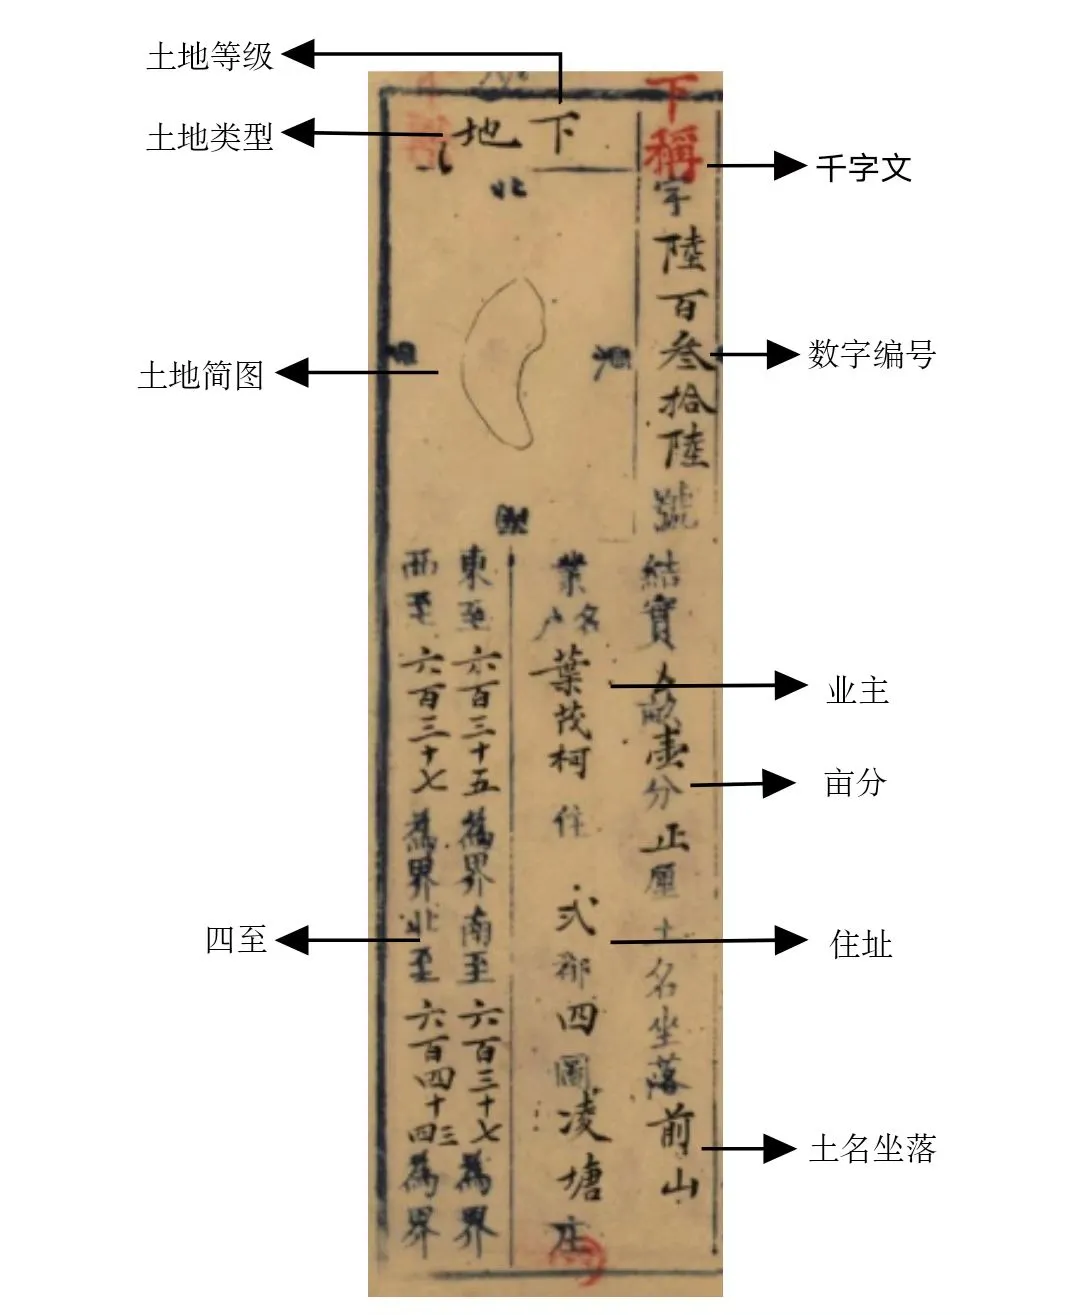 土地等级
土地类型
土地简图
四至
千字文
数字编号
业主
亩分
住址
土名坐落
下稱字陸百叁拾陸號
結實畝壹分正厘土名坐落前山
下地
北
業户名葉茂柯住弍都四圖凌塘庄
東至六百三十五為界南至六百三十七為界
西至六百三十七為界北至六百四十三四為界